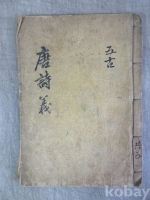 五古
唐詩義
kobay